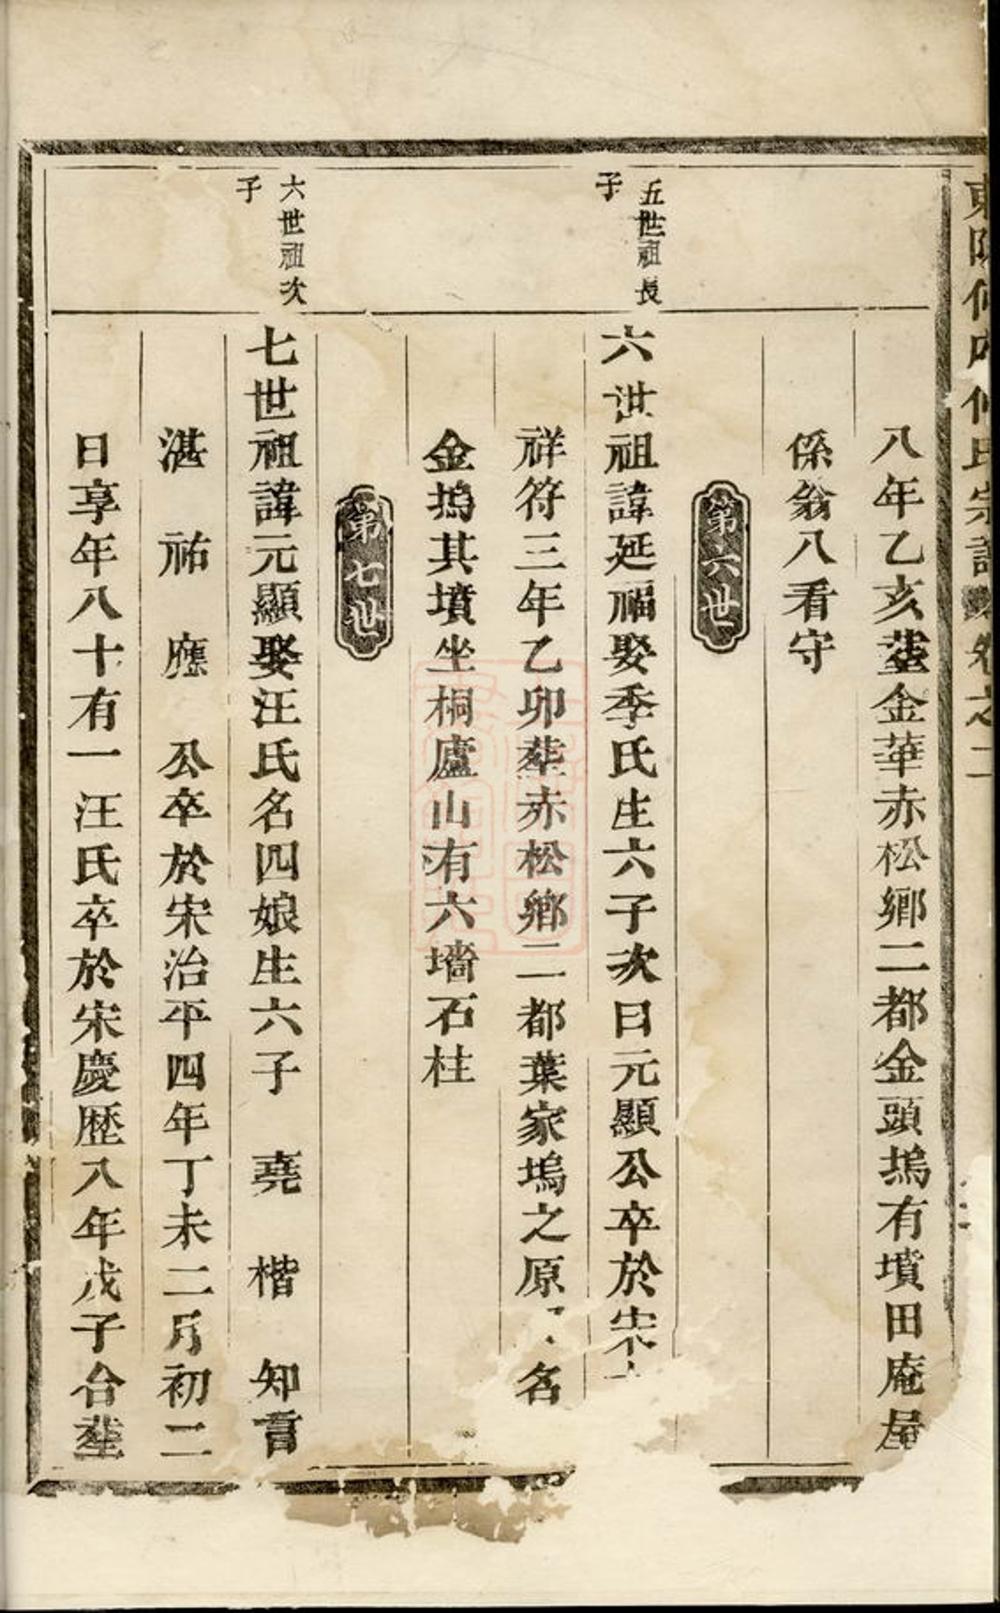 東陽何府何氏宗譜卷之二
八年乙亥塟金華赤松鄉二都金頭塢有墳田庵屋
係翁八看守
第六世
五世祖長
子
六世祖諱延福娶季氏生六子次曰元顯公卒於宋
祥符三年乙卯塟赤松鄉二都葉家塢之原 名
金塢其墳坐桐廬山有六墻石柱
第七世
六世祖次
子
七世祖諱元顯娶汪氏名四娘生六子 堯 楷 知言
湛 祐 應 公卒於宋治平四年丁未二月初二
日享年八十有一汪氏卒於宋慶歷八年戊子合塟